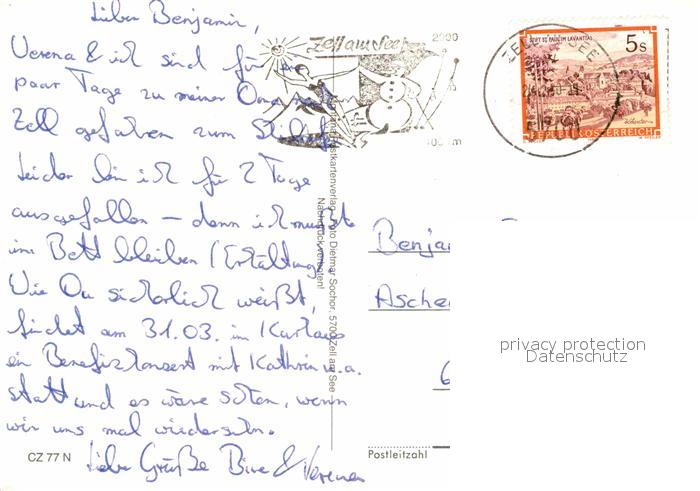 Lieber Benjamin,
Verena & ich sind für ein
paar Tage zu meiner Oma nach
Zell gefahren zum Skilauf
Leider bin ich für 2 Tage
ausgefallen – denn ich mußte
im Bett bleiben (Erkältung)
Wie Du sicherlich weißt,
findet am 31.03. im Karlaus
ein Benefizkonzert mit Kathrin u.a.
statt und es wäre schön, wenn
wir uns mal wiedersehn.
Liebe Grüße Bine & Verena
CZ 77 N
Zell am See
2000
STIFT ST. PAUL IM LAVANTTAL
5 S
REPUBLIK ÖSTERREICH
ZELL AM SEE
Postkartenverlag Foto Dietmar Sochor, 5700 Zell am See
Nachdruck verboten!
Benja
Asche
6
Postleitzahl
privacy protection
Datenschutz